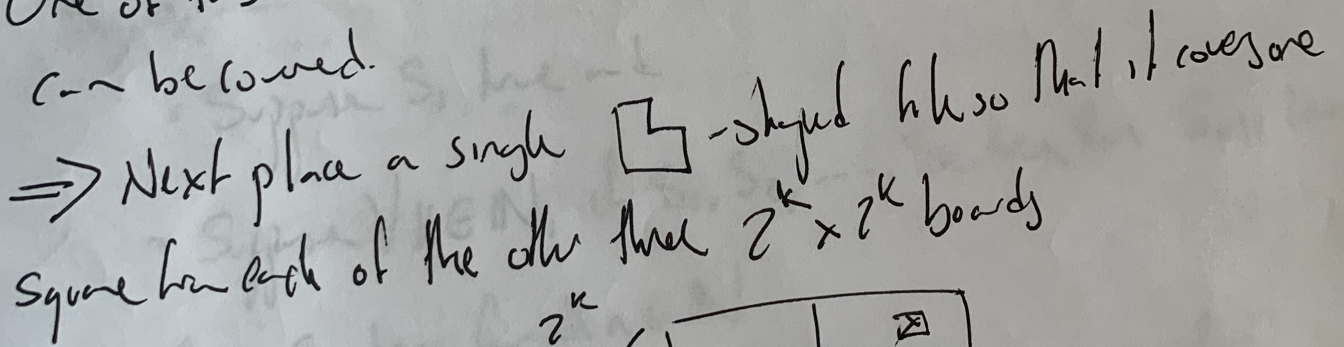 One of
can be covered.
⇒ Next place a single -shaped tile so that it covers one
square from each of the other three 2^k × 2^k boards
2^k